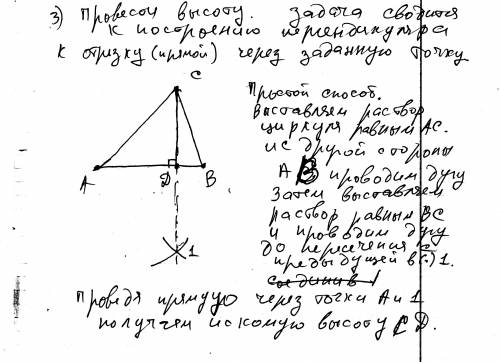 3) Провесой высоту. Задача сводится
к построению перпендикуляра
к отрезку (прямой) через заданную точку
C
A D B
1
Простой способ.
Выставляем раствор
циркуля равным AC.
и с другой стороны
AB проводим дугу
Затем выставляем
раствор равным BC
и проводим дугу
до пересечения с
предыдущей в (.) 1.
соединив
Проведя прямую через точки A и 1
получаем искомую высоту CD.